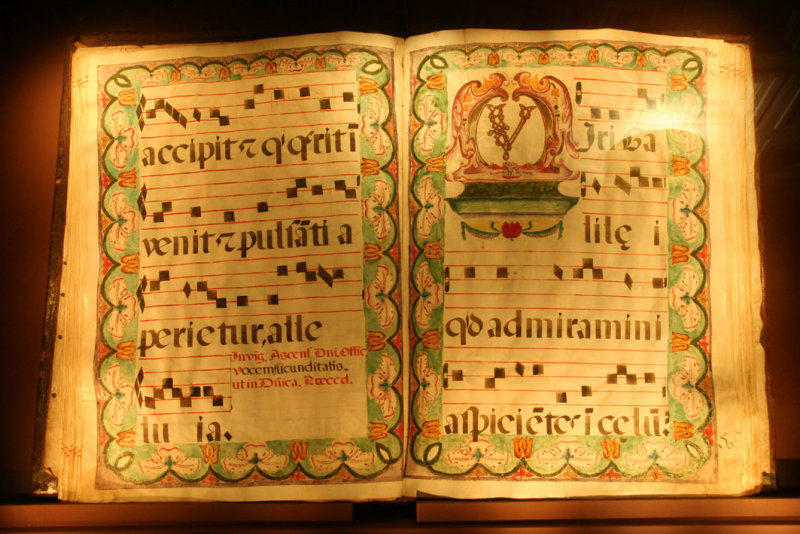 accipit ⁊ q̃ q̃rit ī
venit ⁊ pulsāti a
perietur, alle
Invig. Ascens. Dni. Offic
vocem iucunditatis.
ut in Dñica. Præced.
lu ia.
V Iri Ga
lilę i
qd admiramini
aspiciētes ī cęlū?